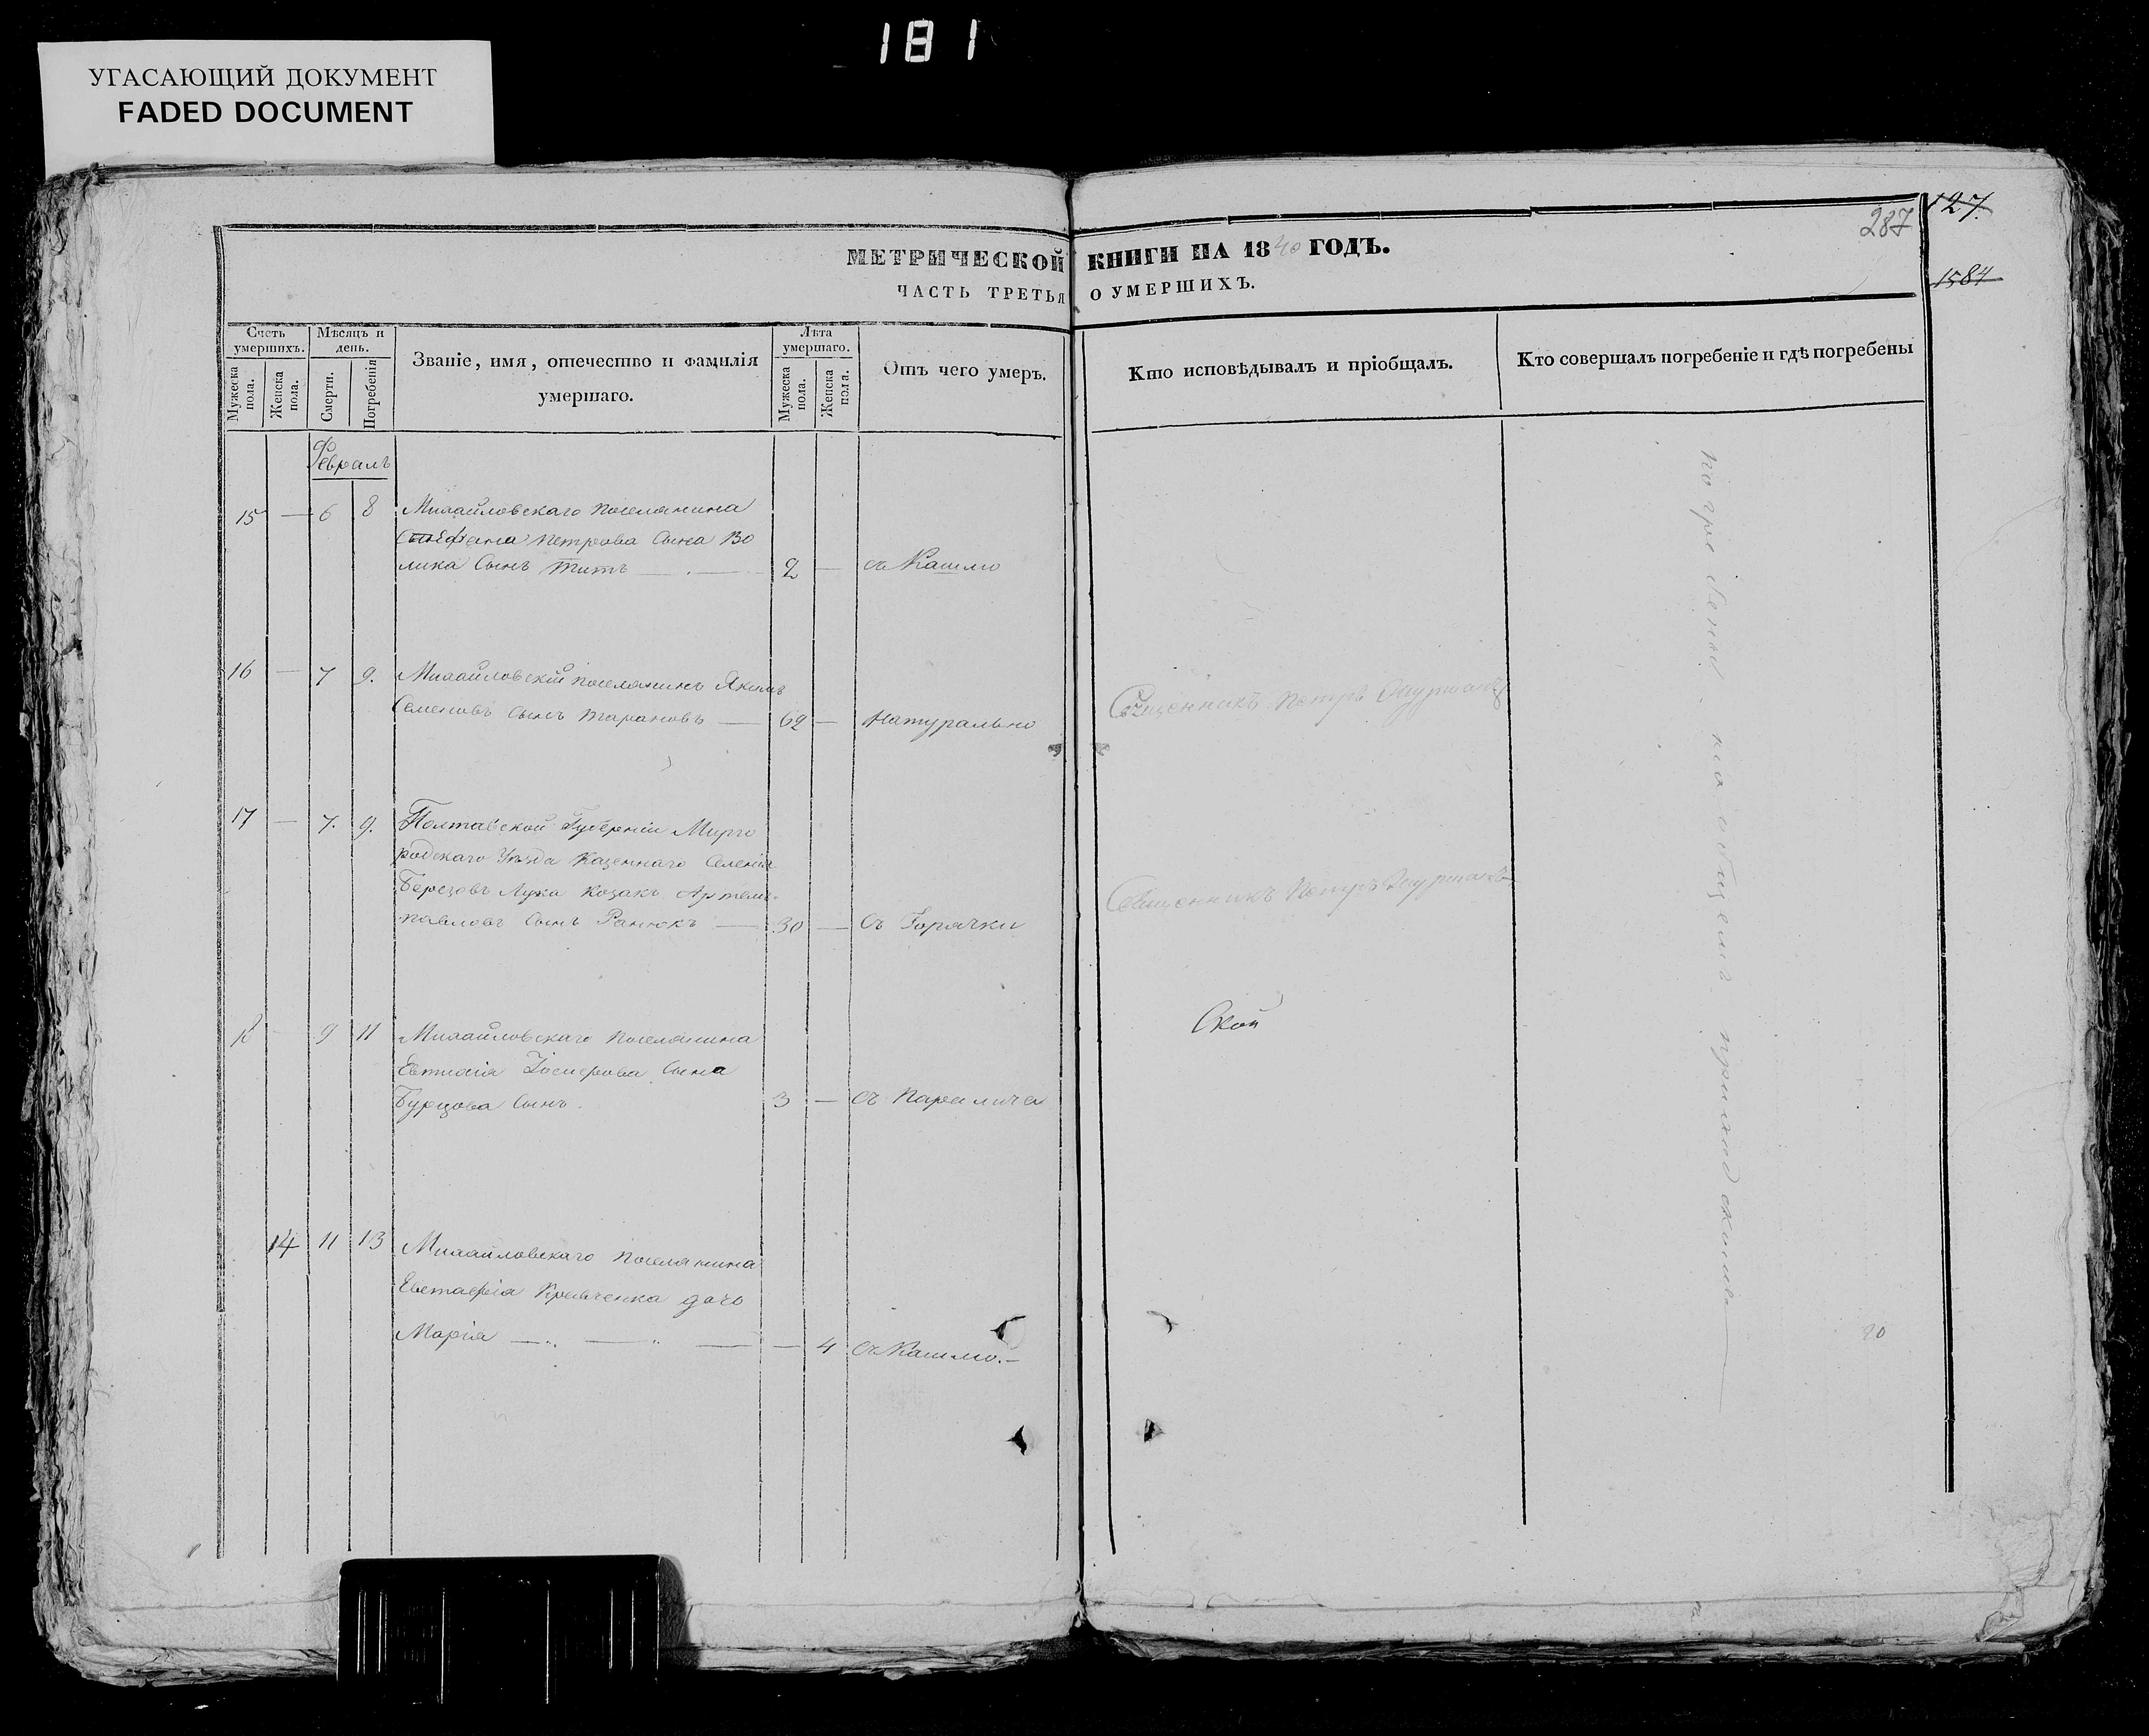 181
УГАСАЮЩИЙ ДОКУМЕНТ
FADED DOCUMENT
127.
287
1584
МЕТРИЧЕСКОЙ КНИГИ НА 1840 ГОДЪ.
ЧАСТЬ ТРЕТЬЯ О УМЕРШИХЪ.
Счетъ умершихъ.
Мужеска пола.
Женска пола.
Мѣсяцъ и день.
Смерти.
Погребенія
Званіе, имя, отечество и фамилія умершаго.
Лѣта умершаго.
Мужеска пола.
Женска пола.
Отъ чего умеръ.
Кто исповѣдывалъ и пріобщалъ.
Кто совершалъ погребеніе и гдѣ погребены
Февраль
15 — 6 8 Михайловскаго поселянина
Стефана Петрова Сына Во
лика Сынъ Титъ — 2 — съ Кашлю
16 — 7 9. Михайловскій поселянинъ Якимъ
Семеновъ Сынъ Тарановъ — 62 — Натурально
Священникъ Петръ
17 — 7. 9. Полтавской Губерніи Мирго
родскаго Уѣзда Казеннаго Селенія
Березовъ Лука Козакъ Артемъ
Павловъ Сынъ Ранюкъ — 30 — Съ Горячки
Священникъ Петръ
18 — 9 11 Михайловскаго Поселянина
Сына
Бурцова Сынъ. 3 — Съ Паралича
14 11 13 Михайловскаго Поселянина
Евстафія Кравченка дочь
Марія — — 4 Съ Кашлю. —
погребены на общемъ приходскомъ
20